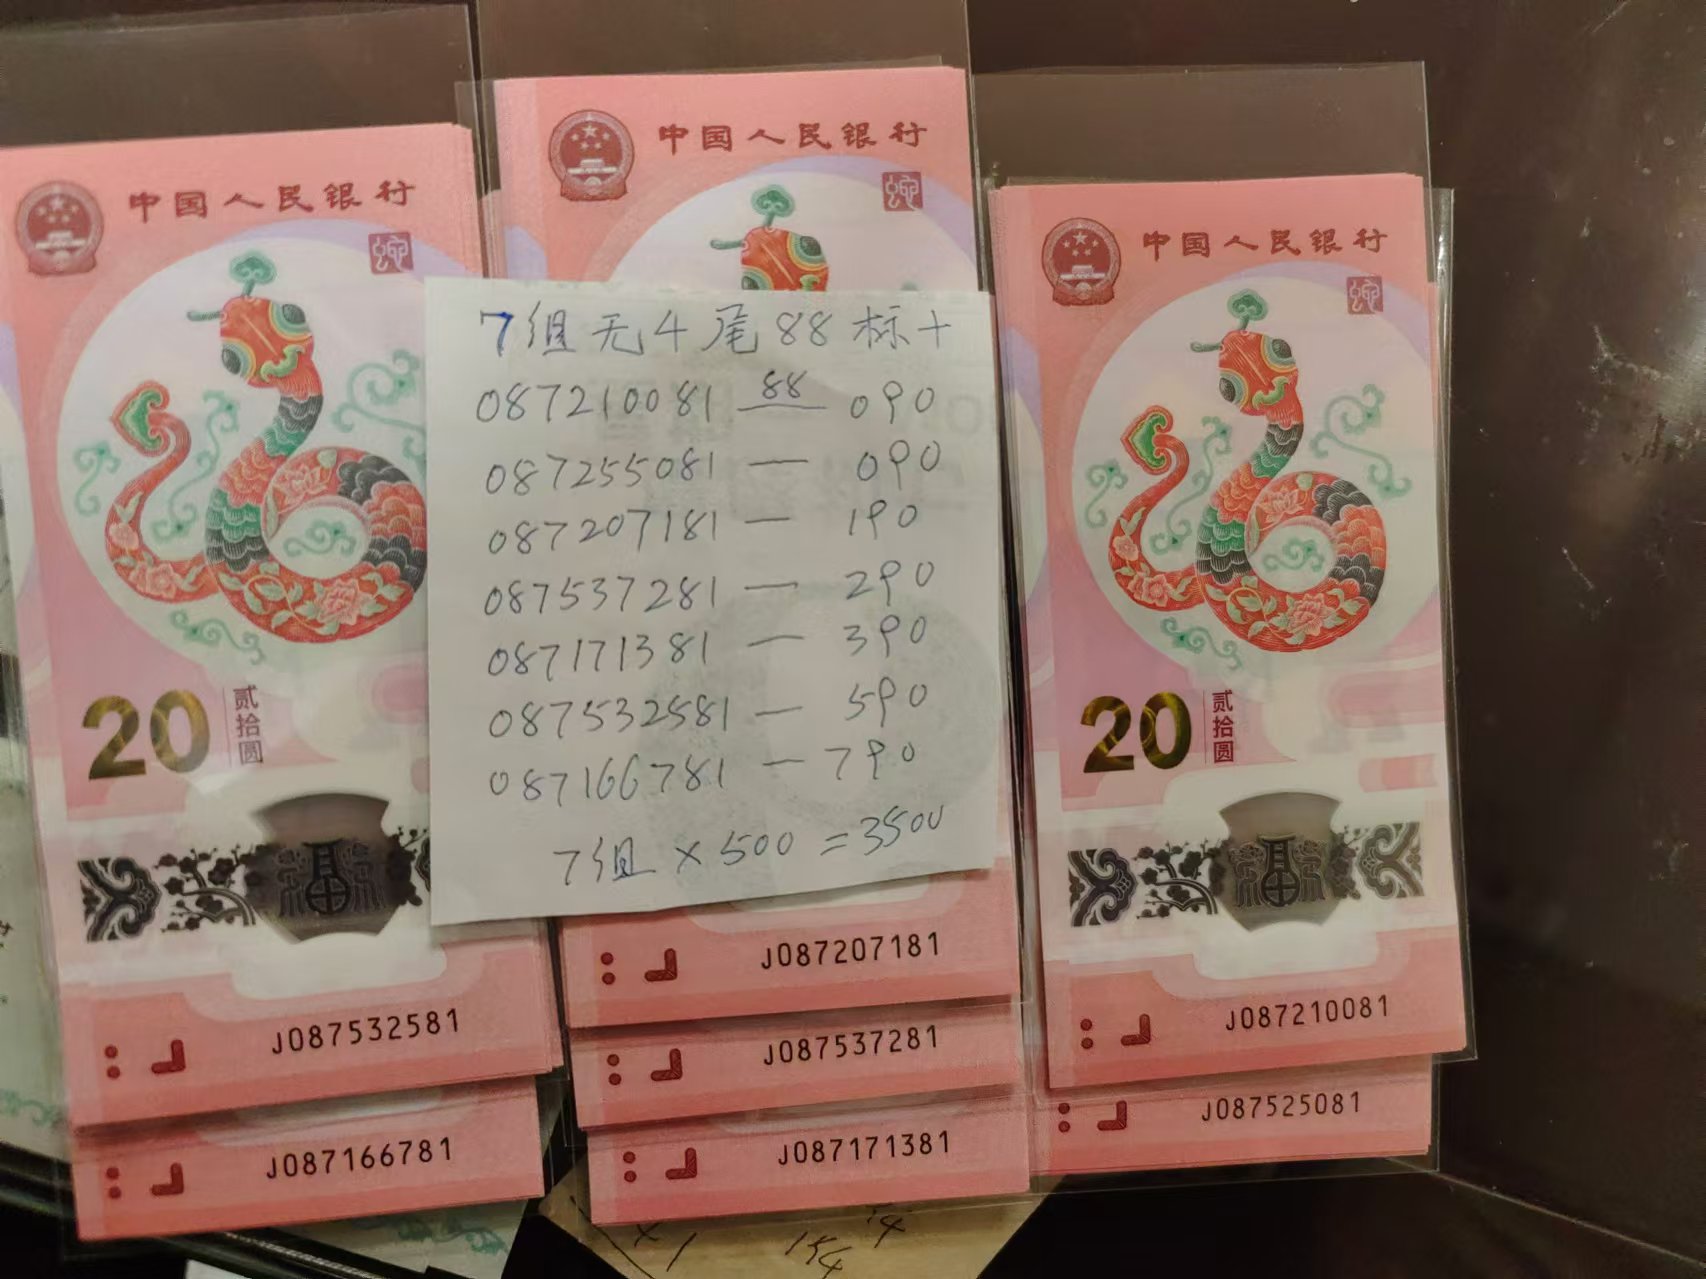 中国人民银行
20 贰拾圆
J087532581
J087166781
中国人民银行
7组无4尾88标十
087210081 88 090
087255081 — 090
087207181 — 190
087537281 — 290
087171381 — 390
087532581 — 590
087166781 — 790
7组×500=3500
J087207181
J087537281
J087171381
中国人民银行
20 贰拾圆
J087210081
J087525081
154